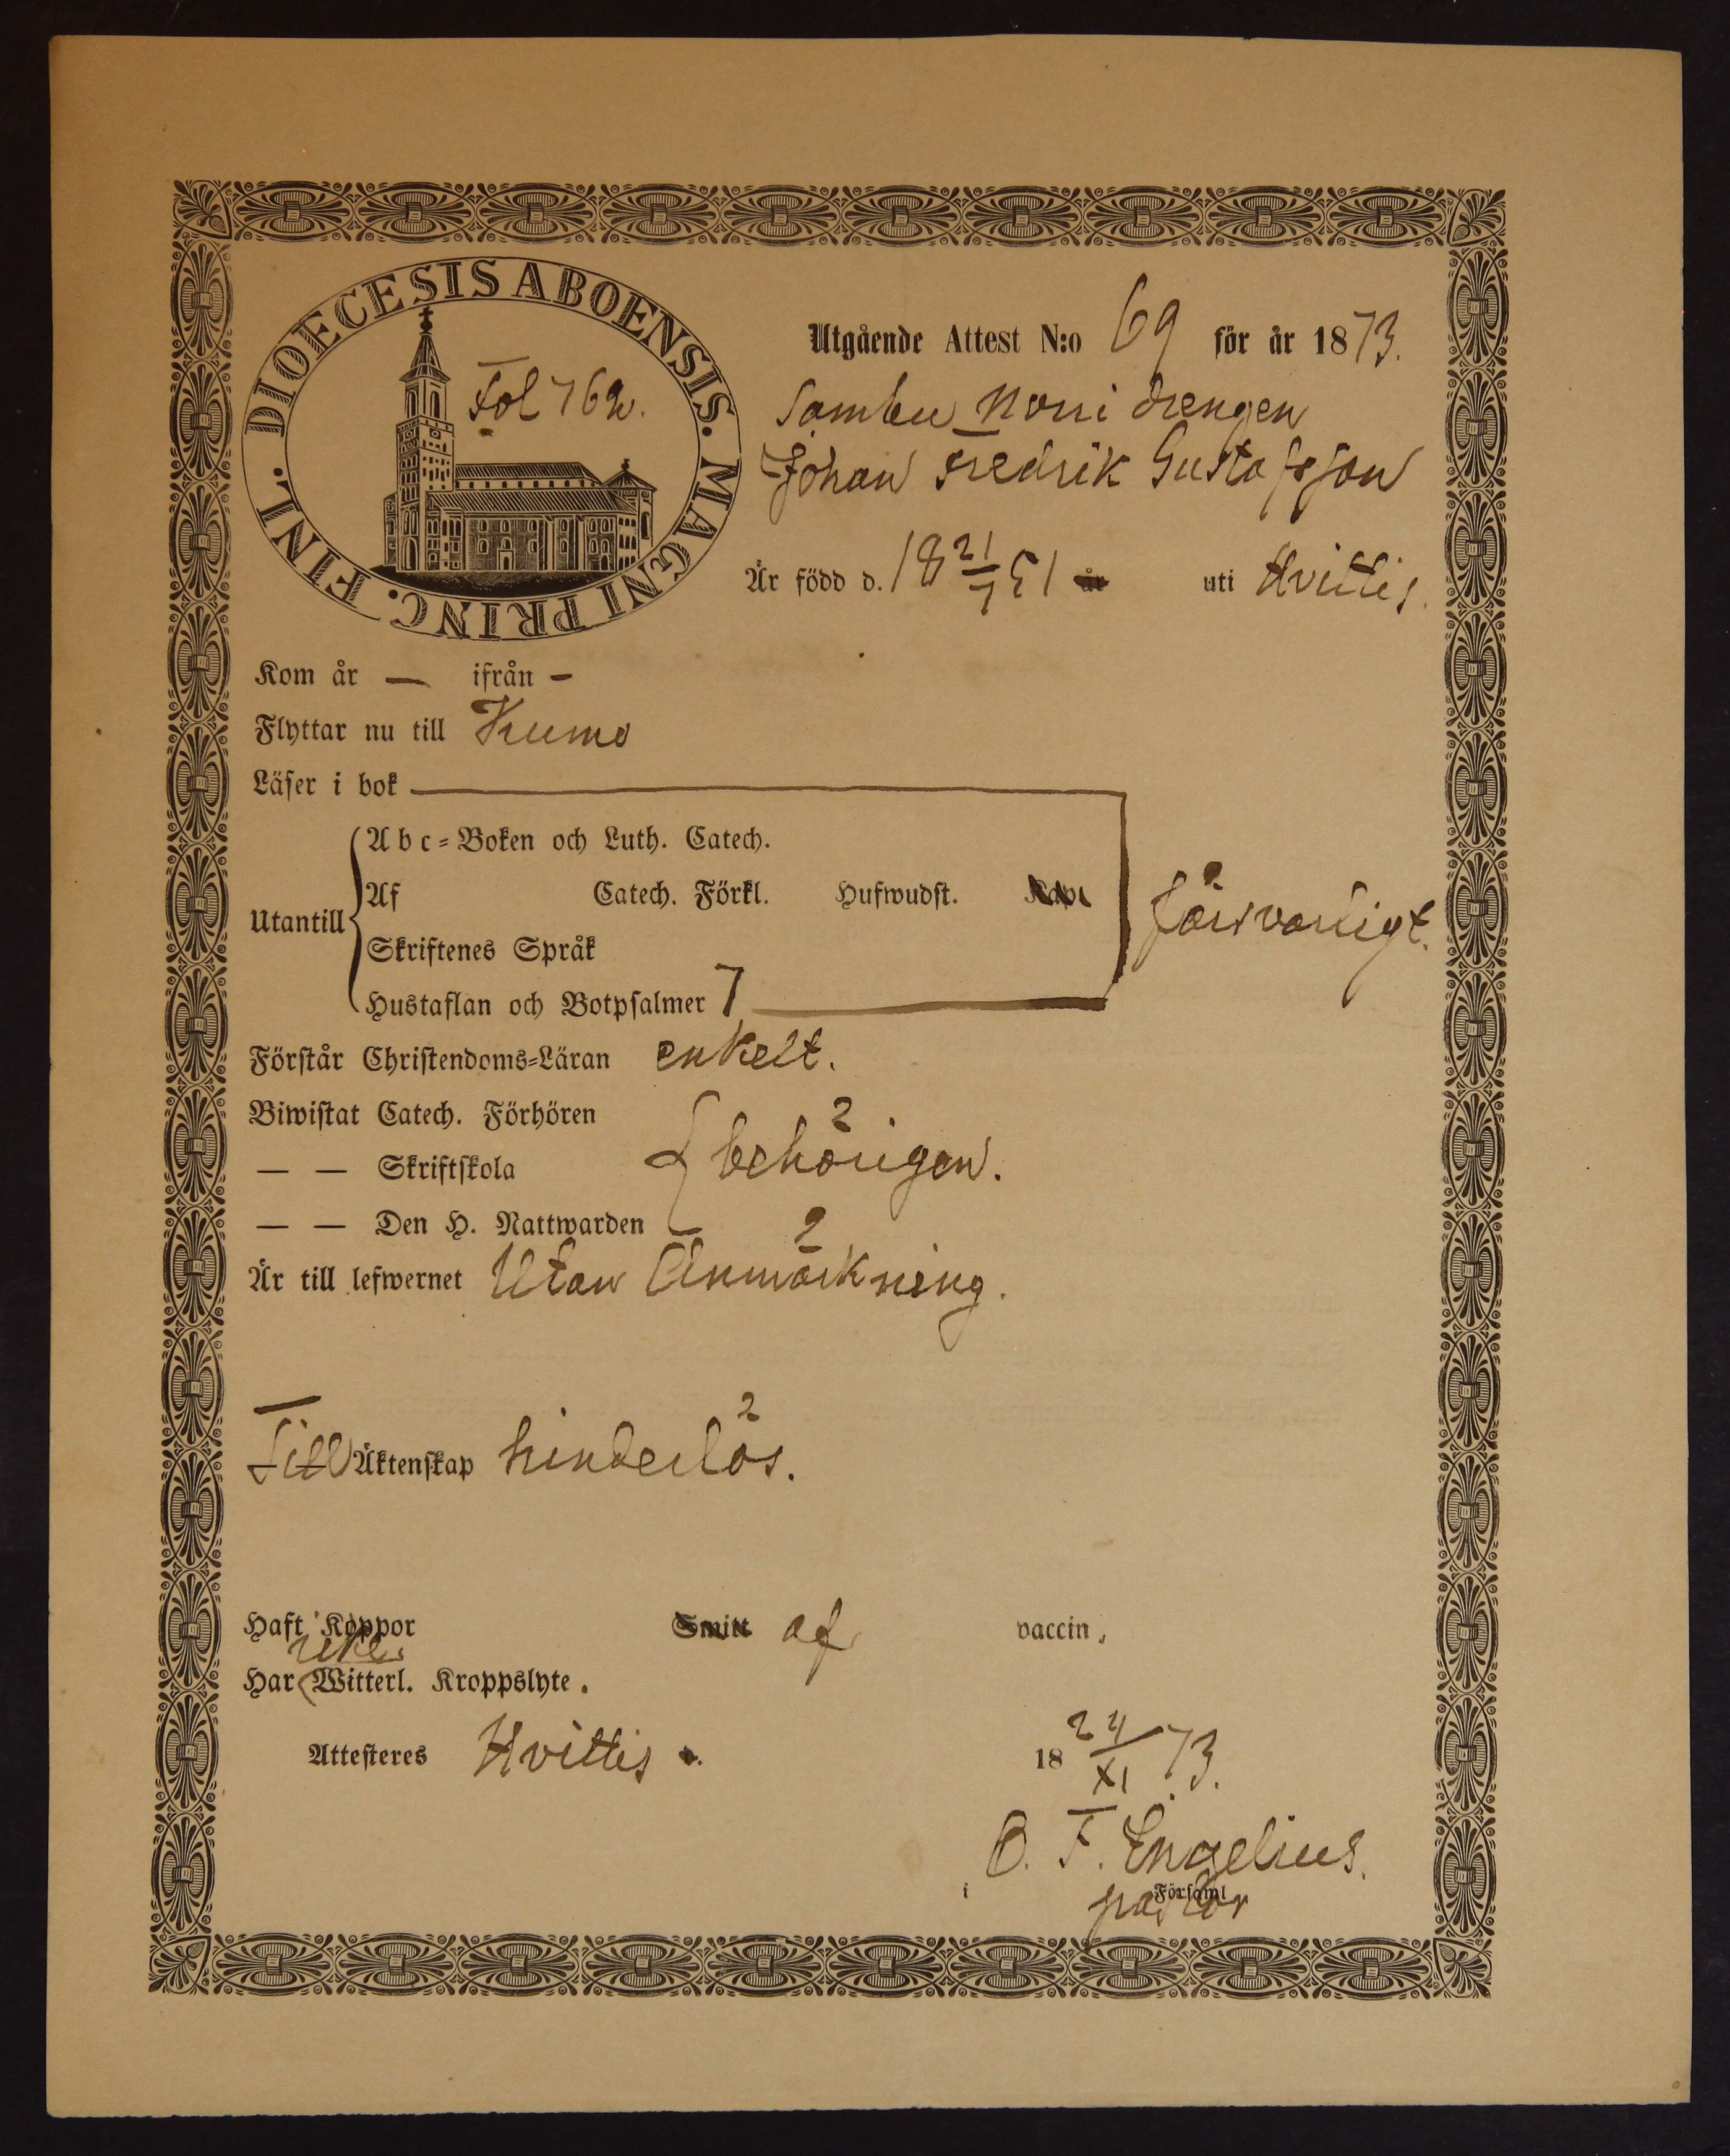 DIOECESIS ABOENSIS. MAGNI PRINC. FINL.
Fol 762.
Utgående Attest N:o 69 för år 1873.
Sambu Norri drengen
Johan Fredrik Gustafsson
Är född d. 18 21/7 51 år uti Hvittis.
Kom år — ifrån –
Flyttar nu till Kumo
Läser i bok
Abc-Boken och Luth. Catech.
Af Catech. Förkl. Hufwudst. Kap.
Utantill
försvarligt.
Skriftenes Språk
Hustaflan och Botpsalmer 7
Förstår Christendoms-Läran enkelt.
Biwistat Catech. Förhören
— — Skriftskola behörigen.
— — Den H. Nattwarden
Är till lefwernet Utan Anmärkning.
Till Äktenskap hinderlös.
Haft Koppor Smitt af vaccin.
Har Witterl. Kroppslyte.
Attesteres Hvittis d. 18 24/XI 73.
O. F. Engelius.
i Församl
pastor